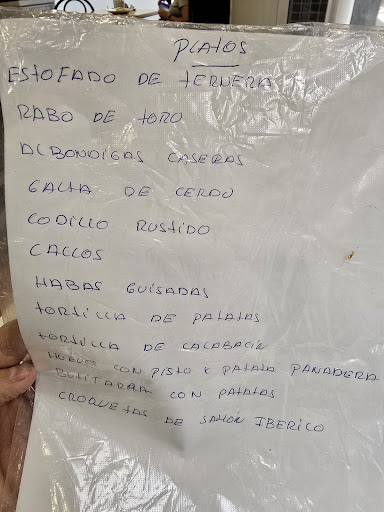 PLATOS
ESTOFADO DE TERNERA
RABO DE TORO
ALBONDIGAS CASERAS
GALTA DE CERDO
CODILLO RUSTIDO
CALLOS
HABAS GUISADAS
TORTILLA DE PATATAS
TORTILLA DE CALABACIN
HUEVOS CON PISTO Y PATATA PANADERA
BUTIFARRA CON PATATAS
CROQUETAS DE JAMON IBERICO